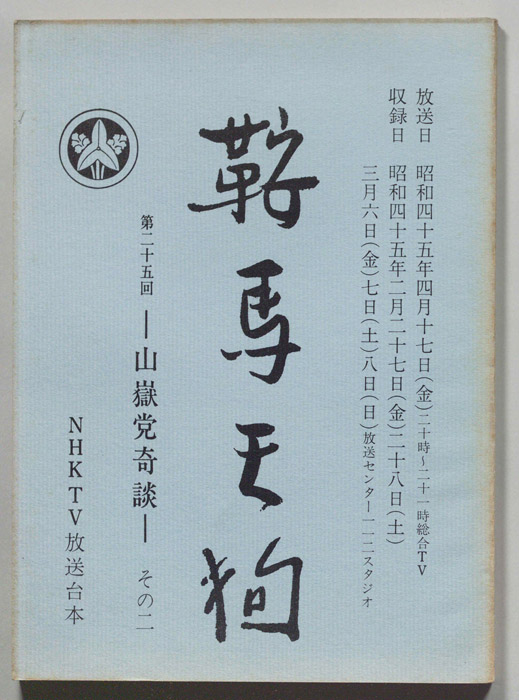 放送日　昭和四十五年四月十七日(金)二十時~二十一時総合TV
収録日　昭和四十五年二月二十七日(金)二十八日(土)
三月六日(金)七日(土)八日(日)放送センター一一二スタジオ
鞍馬天狗
第二十五回　―山嶽党奇談―　その二
NHKTV放送台本